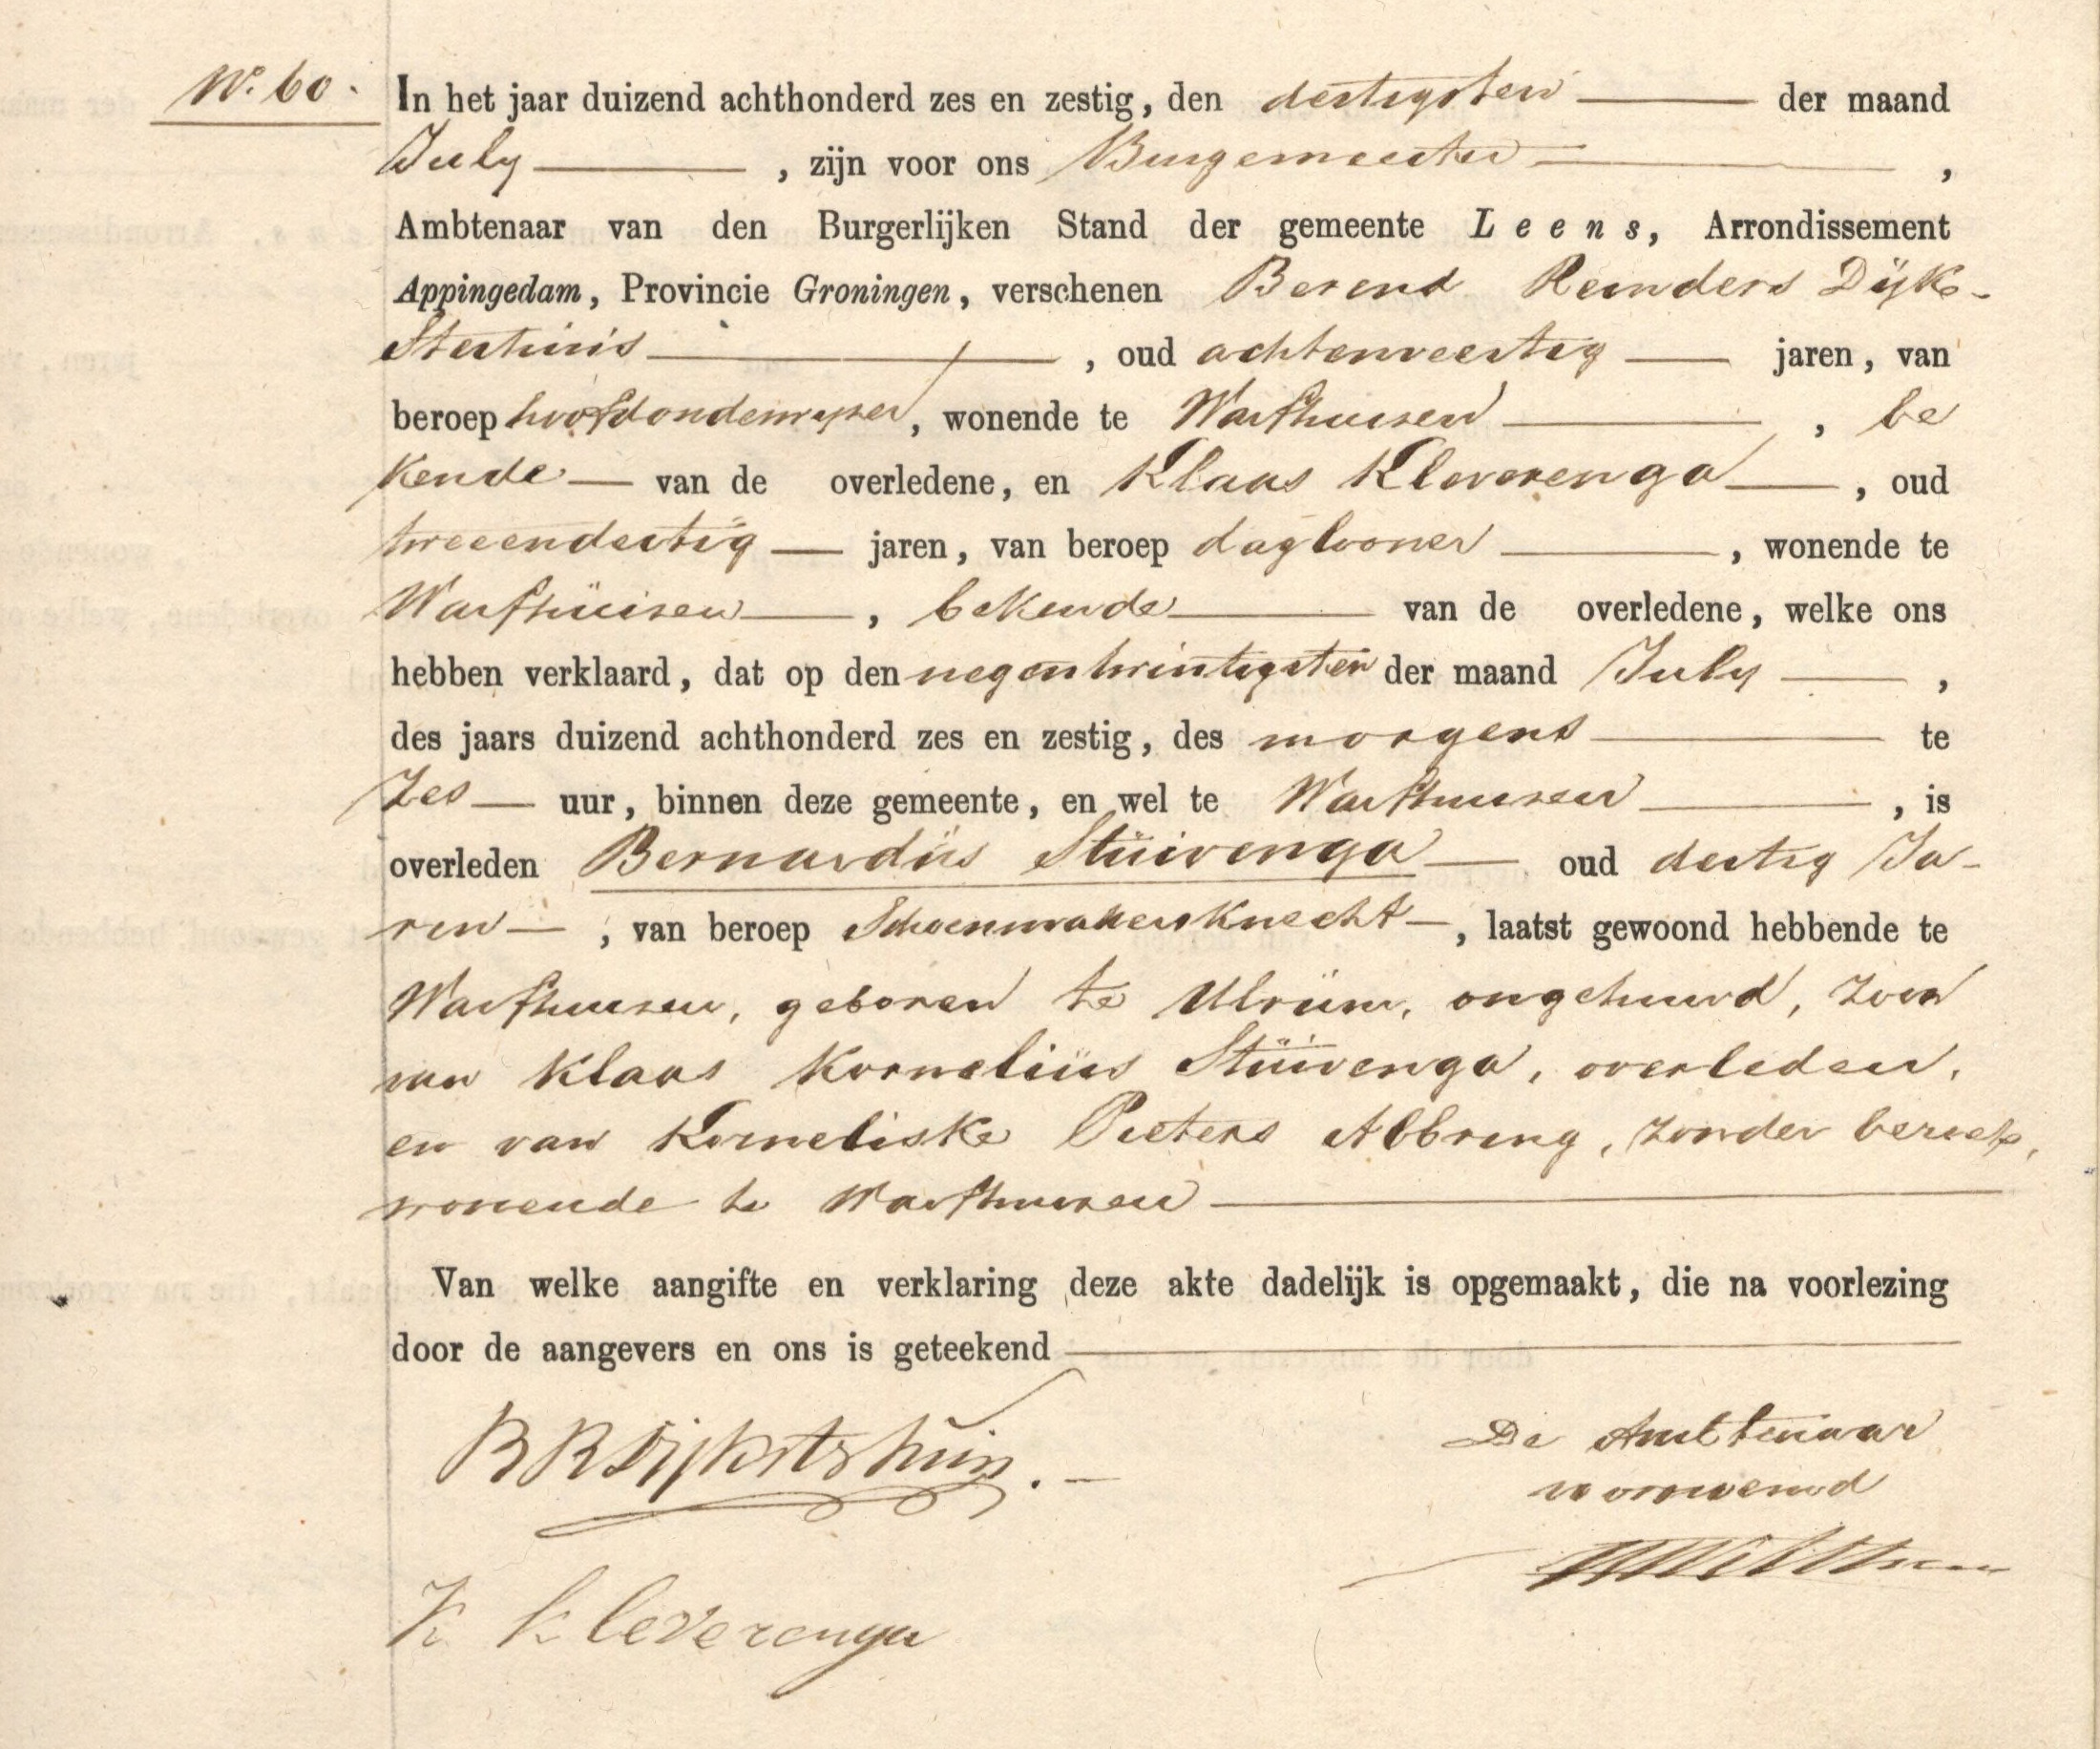 N.º 60.
In het jaar duizend achthonderd zes en zestig, den dertigsten — der maand
July — , zijn voor ons Burgemeester — ,
Ambtenaar van den Burgerlijken Stand der gemeente Leens, Arrondissement
Appingedam, Provincie Groningen, verschenen Berend Reinders Dijk-
sterhuis — , oud achtenveertig — jaren, van
beroep hoofdonderwijzer, wonende te Warfhuisen — , be
kende — van de overledene, en Klaas Kleverenga — , oud
tweeendertig — jaren, van beroep daglooner — , wonende te
Warfhuisen — , bekende — van de overledene, welke ons
hebben verklaard, dat op den negentwintigsten der maand July — ,
des jaars duizend achthonderd zes en zestig, des morgens — te
Zes — uur, binnen deze gemeente, en wel te Warfhuisen — , is
overleden Bernardus Stuivenga — oud dertig Ja-
ren — , van beroep Schoenmakersknecht — , laatst gewoond hebbende te
Warfhuisen, geboren te Ulrum, ongehuwd, zoon
van Klaas Kornelius Stuivenga, overleden,
en van Korneliske Pieters Abbring, zonder beroep,
wonende te Warfhuisen —
Van welke aangifte en verklaring deze akte dadelijk is opgemaakt, die na voorlezing
door de aangevers en ons is geteekend —
B R Dijksterhuis. —
De Ambtenaar
voornoemd
K Kleverenga